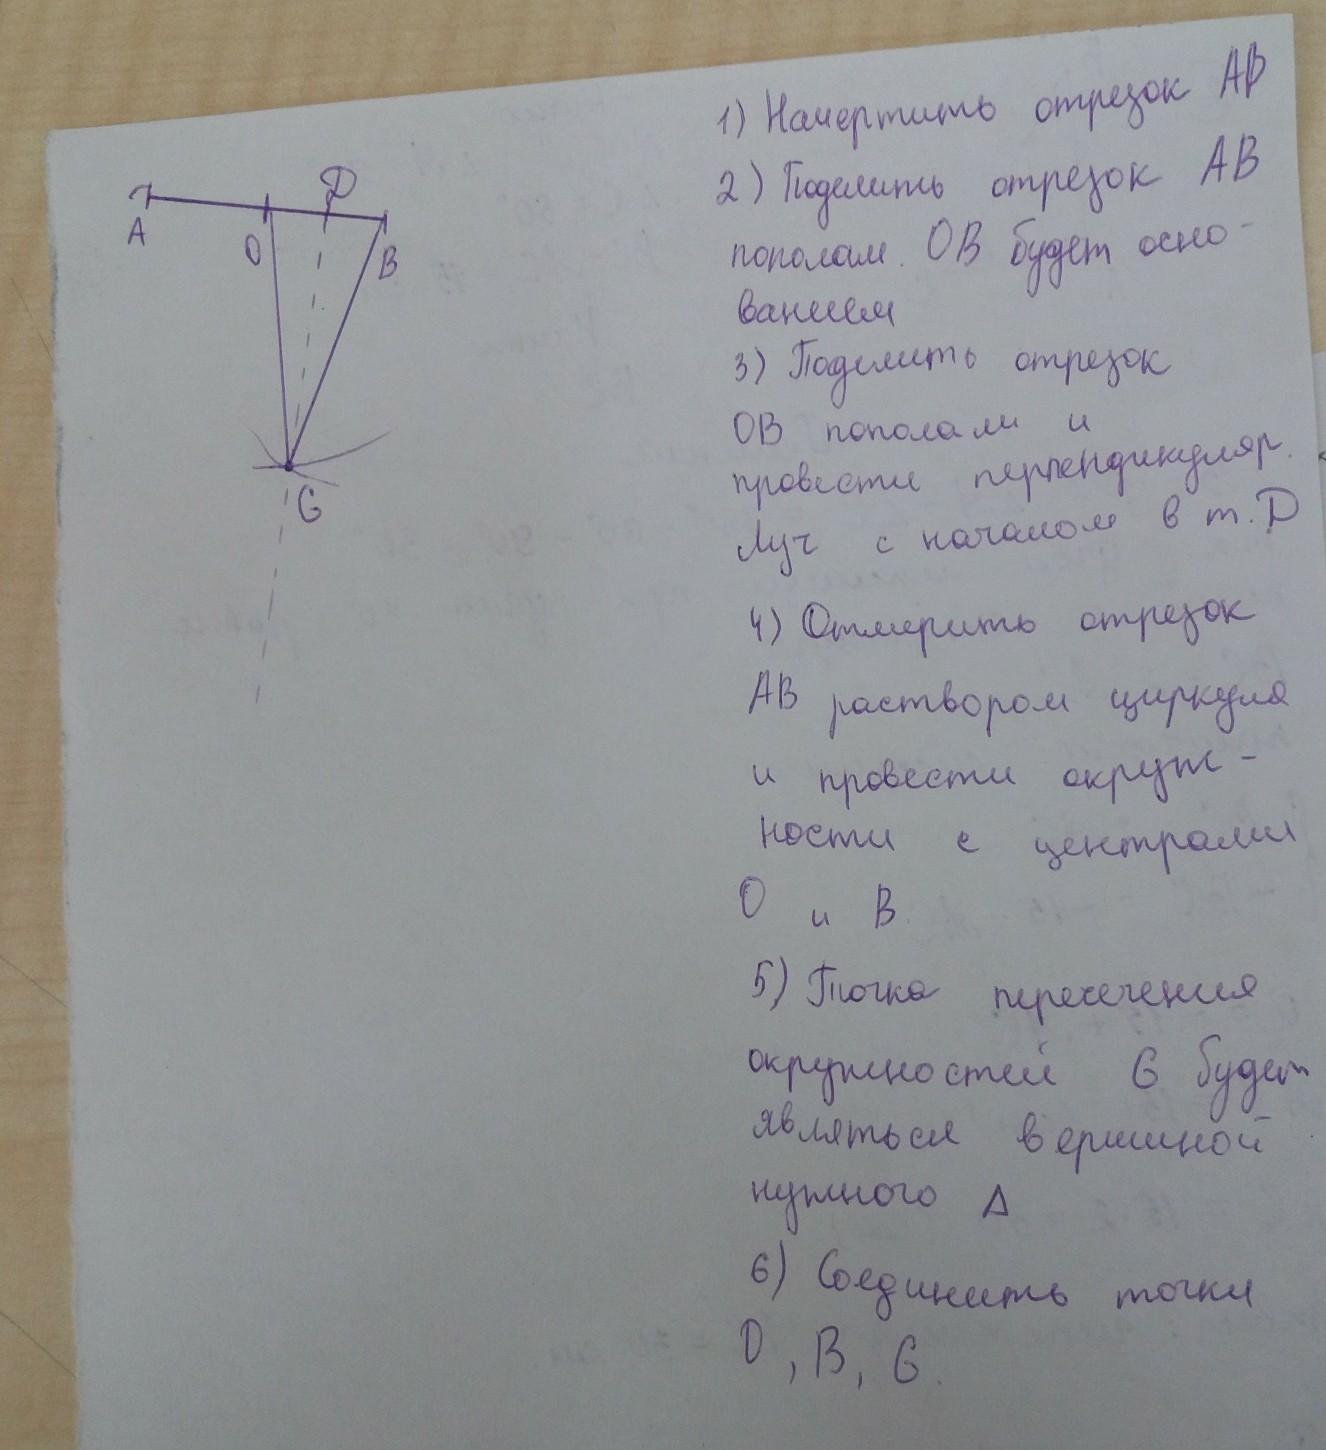 A
O
D
B
G
1) Начертить отрезок AB
2) Поделить отрезок AB
пополам. OB будет осно-
ванием
3) Поделить отрезок
OB пополам и
провести перпендикуляр.
Луч с началом в т. D
4) Отмерить отрезок
AB раствором циркуля
и провести окруж-
ности с центрами
O и B.
5) Точка пересечения
окружностей G будет
являться вершиной
нужного Δ
6) Соединить точки
O, B, G.